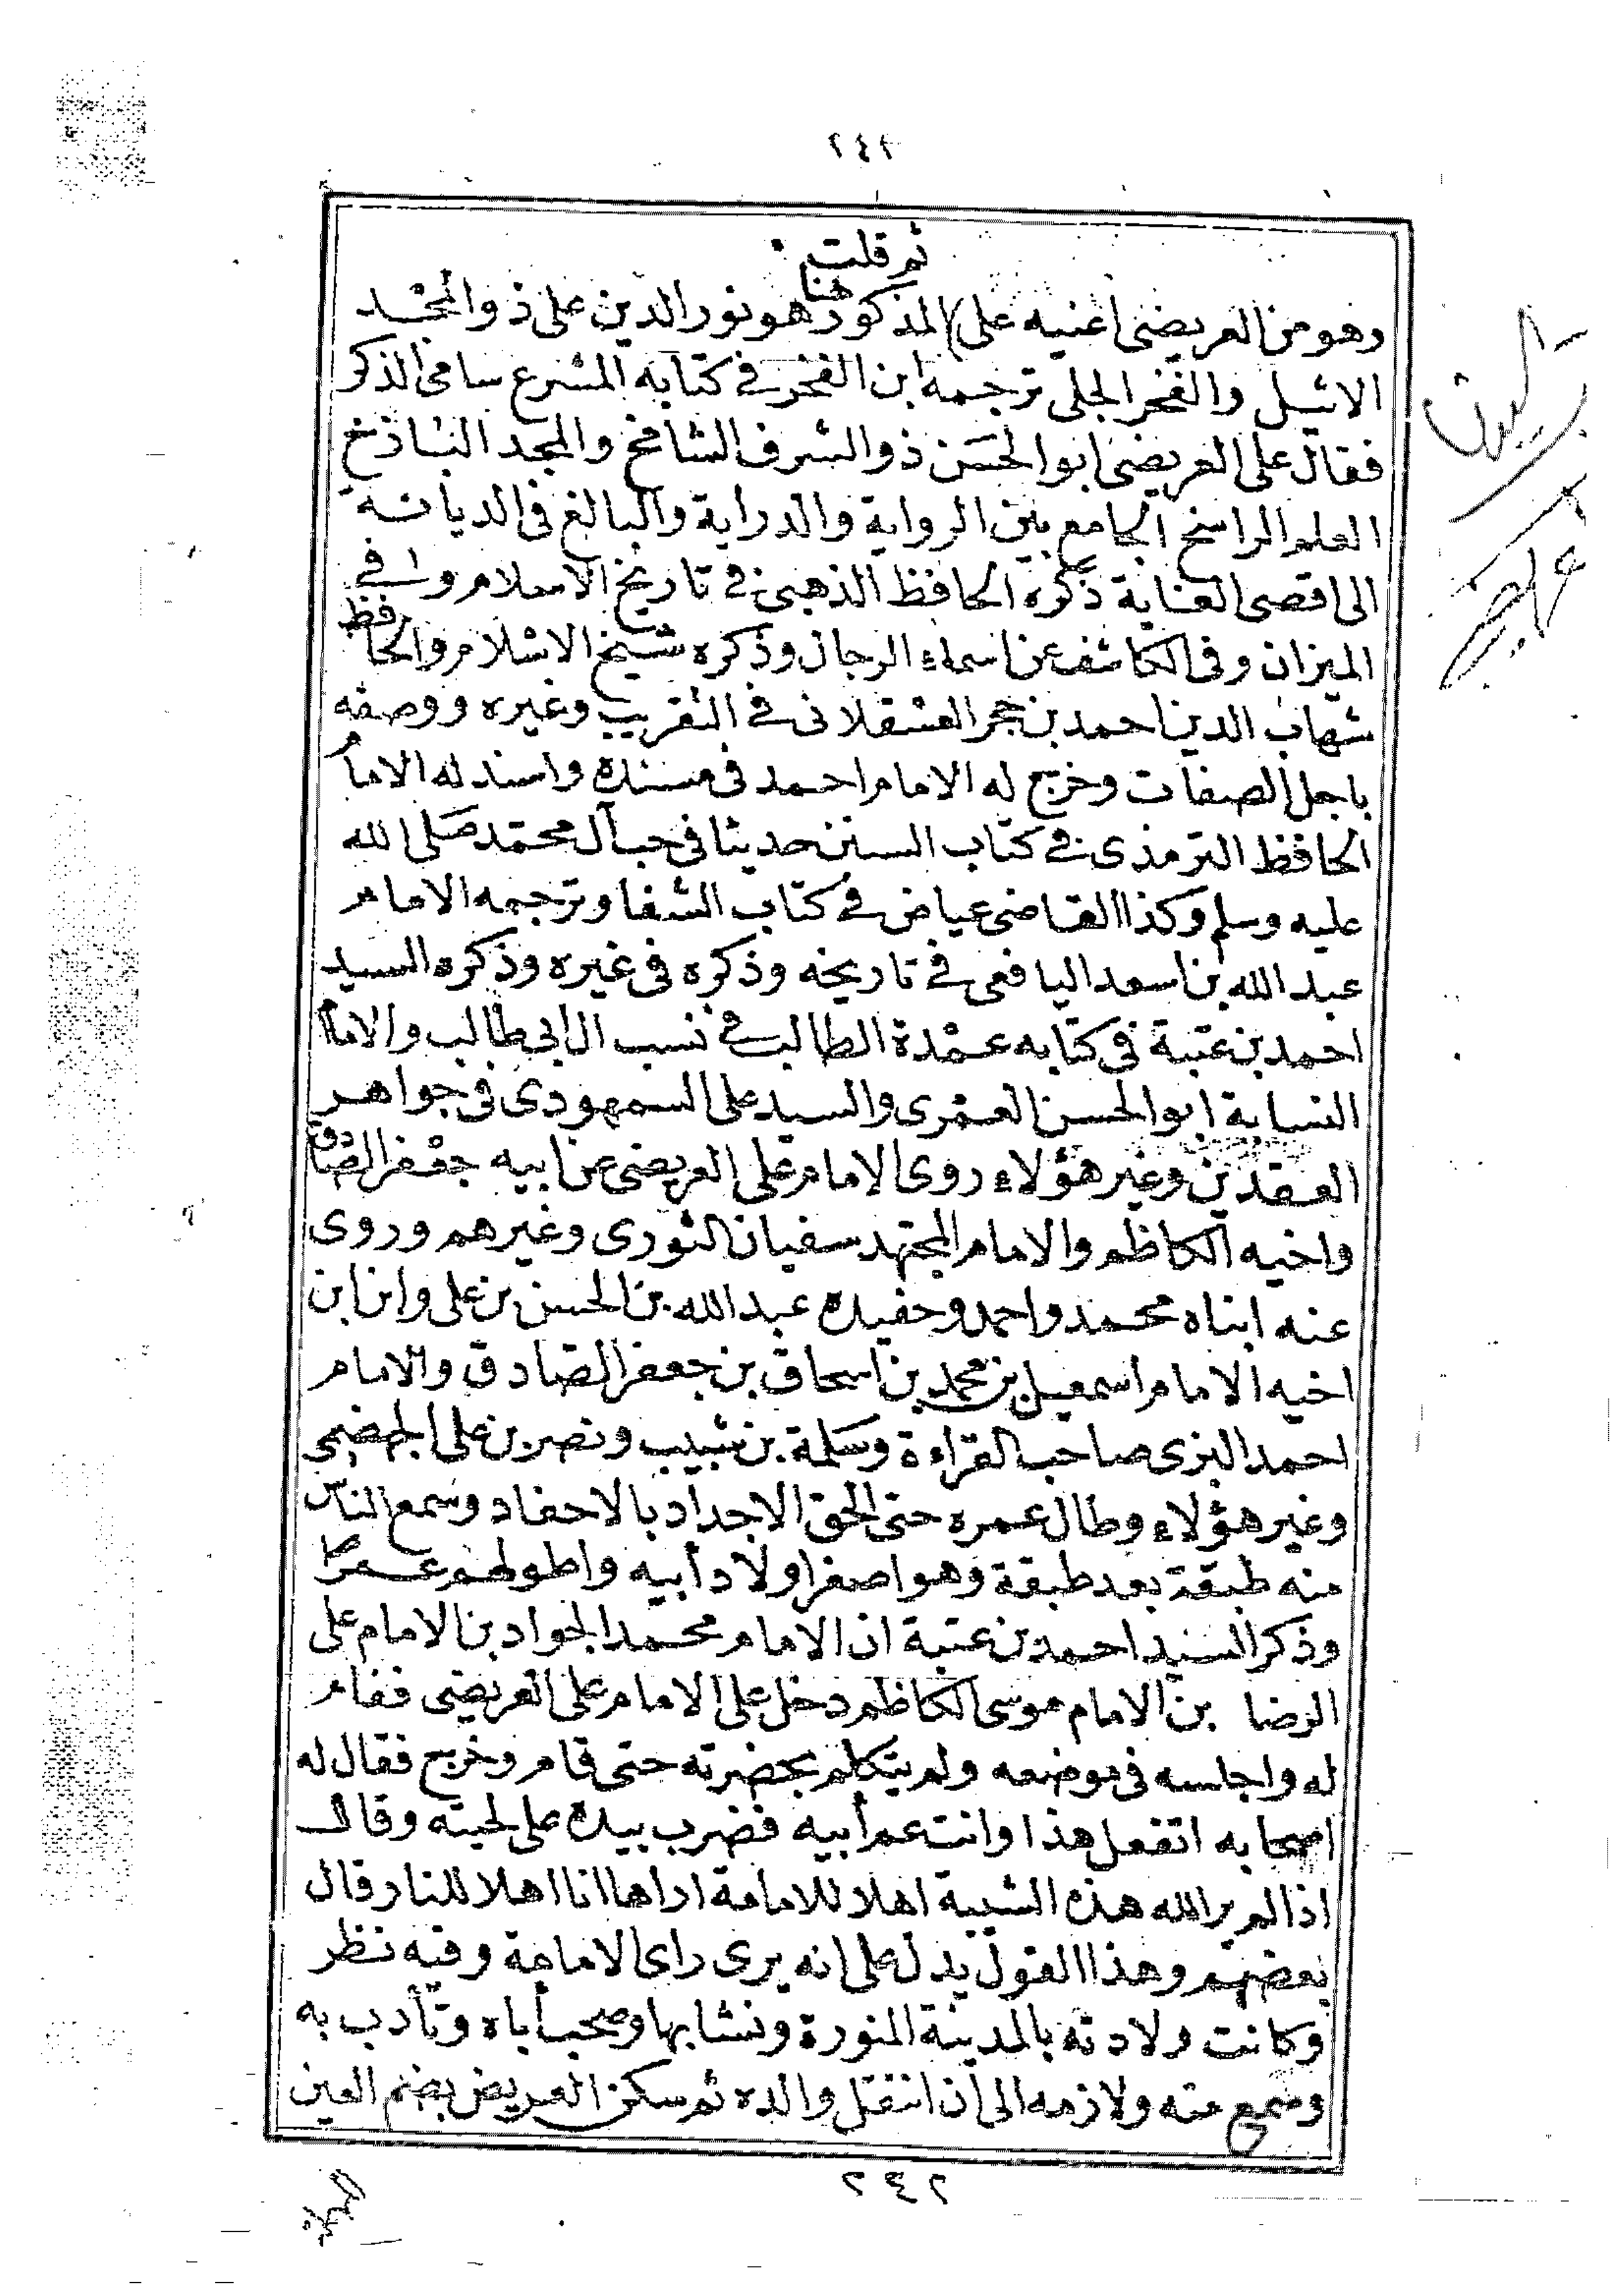 ٢٤٢
ثم قلت
وهو من العريضى اعنيه على المذكور هنا هو نور الدين على ذو المجد
الاثيل والفخر الجلى ترجمه ابن الفخر فى كتابه المشرع سامى الذكر
فقال على العريضى ابو الحسن ذو الشرف الشامخ والمجد الباذخ
العلم الراسخ الجامع بين الرواية والدراية والبالغ فى الديانة
الى اقصى الغاية ذكره الحافظ الذهبى فى تاريخ الاسلام و فى
الميزان وفى الكاشف عن اسماء الرجال وذكره شيخ الاسلام والحافظ
شهاب الدين احمد بن حجر العسقلانى فى التقريب وغيره ووصفه
باجل الصفات وخرج له الامام احمد فى مسنده واسند له الامام
الحافظ الترمذى فى كتاب السنن حديثا فى حب آل محمد صلى الله
عليه وسلم وكذا القاضى عياض فى كتاب الشفا وترجمه الامام
عبد الله بن اسعد اليافعى فى تاريخه وذكره فى غيره وذكره السيد
احمد بن عتبة فى كتابه عمدة الطالب فى نسب ال ابى طالب والامام
النسابة ابو الحسن العمرى والسيد على السمهودى فى جواهر
العقدين وغير هؤلاء روى الامام على العريضى عن ابيه جعفر الصادق
واخيه الكاظم والامام المجتهد سفيان الثورى وغيرهم وروى
عنه ابناه محمد واحمد وحفيده عبد الله بن الحسن بن على وابن ابن
اخيه الامام اسمعيل بن محمد بن اسحاق بن جعفر الصادق والامام
احمد البزى صاحب القراءة وسلمة بن شبيب ونصر بن على الجهضمى
وغير هؤلاء وطال عمره حتى الحق الاجداد بالاحفاد وسمع الناس
منه طبقة بعد طبقة وهو اصغر اولاد أبيه واطولهم عمرا
وذكر السيد احمد بن عتبة ان الامام محمد الجواد بن الامام على
الرضا بن الامام موسى الكاظم دخل على الامام على العريضى فقام
له واجلسه فى موضعه ولم يتكلم بحضرته حتى قام وخرج فقال له
اصحابه اتفعل هذا وانت عم أبيه فضرب بيده على لحيته وقال
اذا لم ير الله هذه الشيبة اهلا للامامة اراها انا اهلا للنار قال
بعضهم وهذا القول يدل على انه يرى راى الامامية وفيه نظر
وكانت ولادته بالمدينة المنورة ونشا بها وصحب أباه وتأدب به
وسمع منه ولازمه الى أن انتقل والده ثم سكن العريض بضم العين
٢٤٢
المهملة